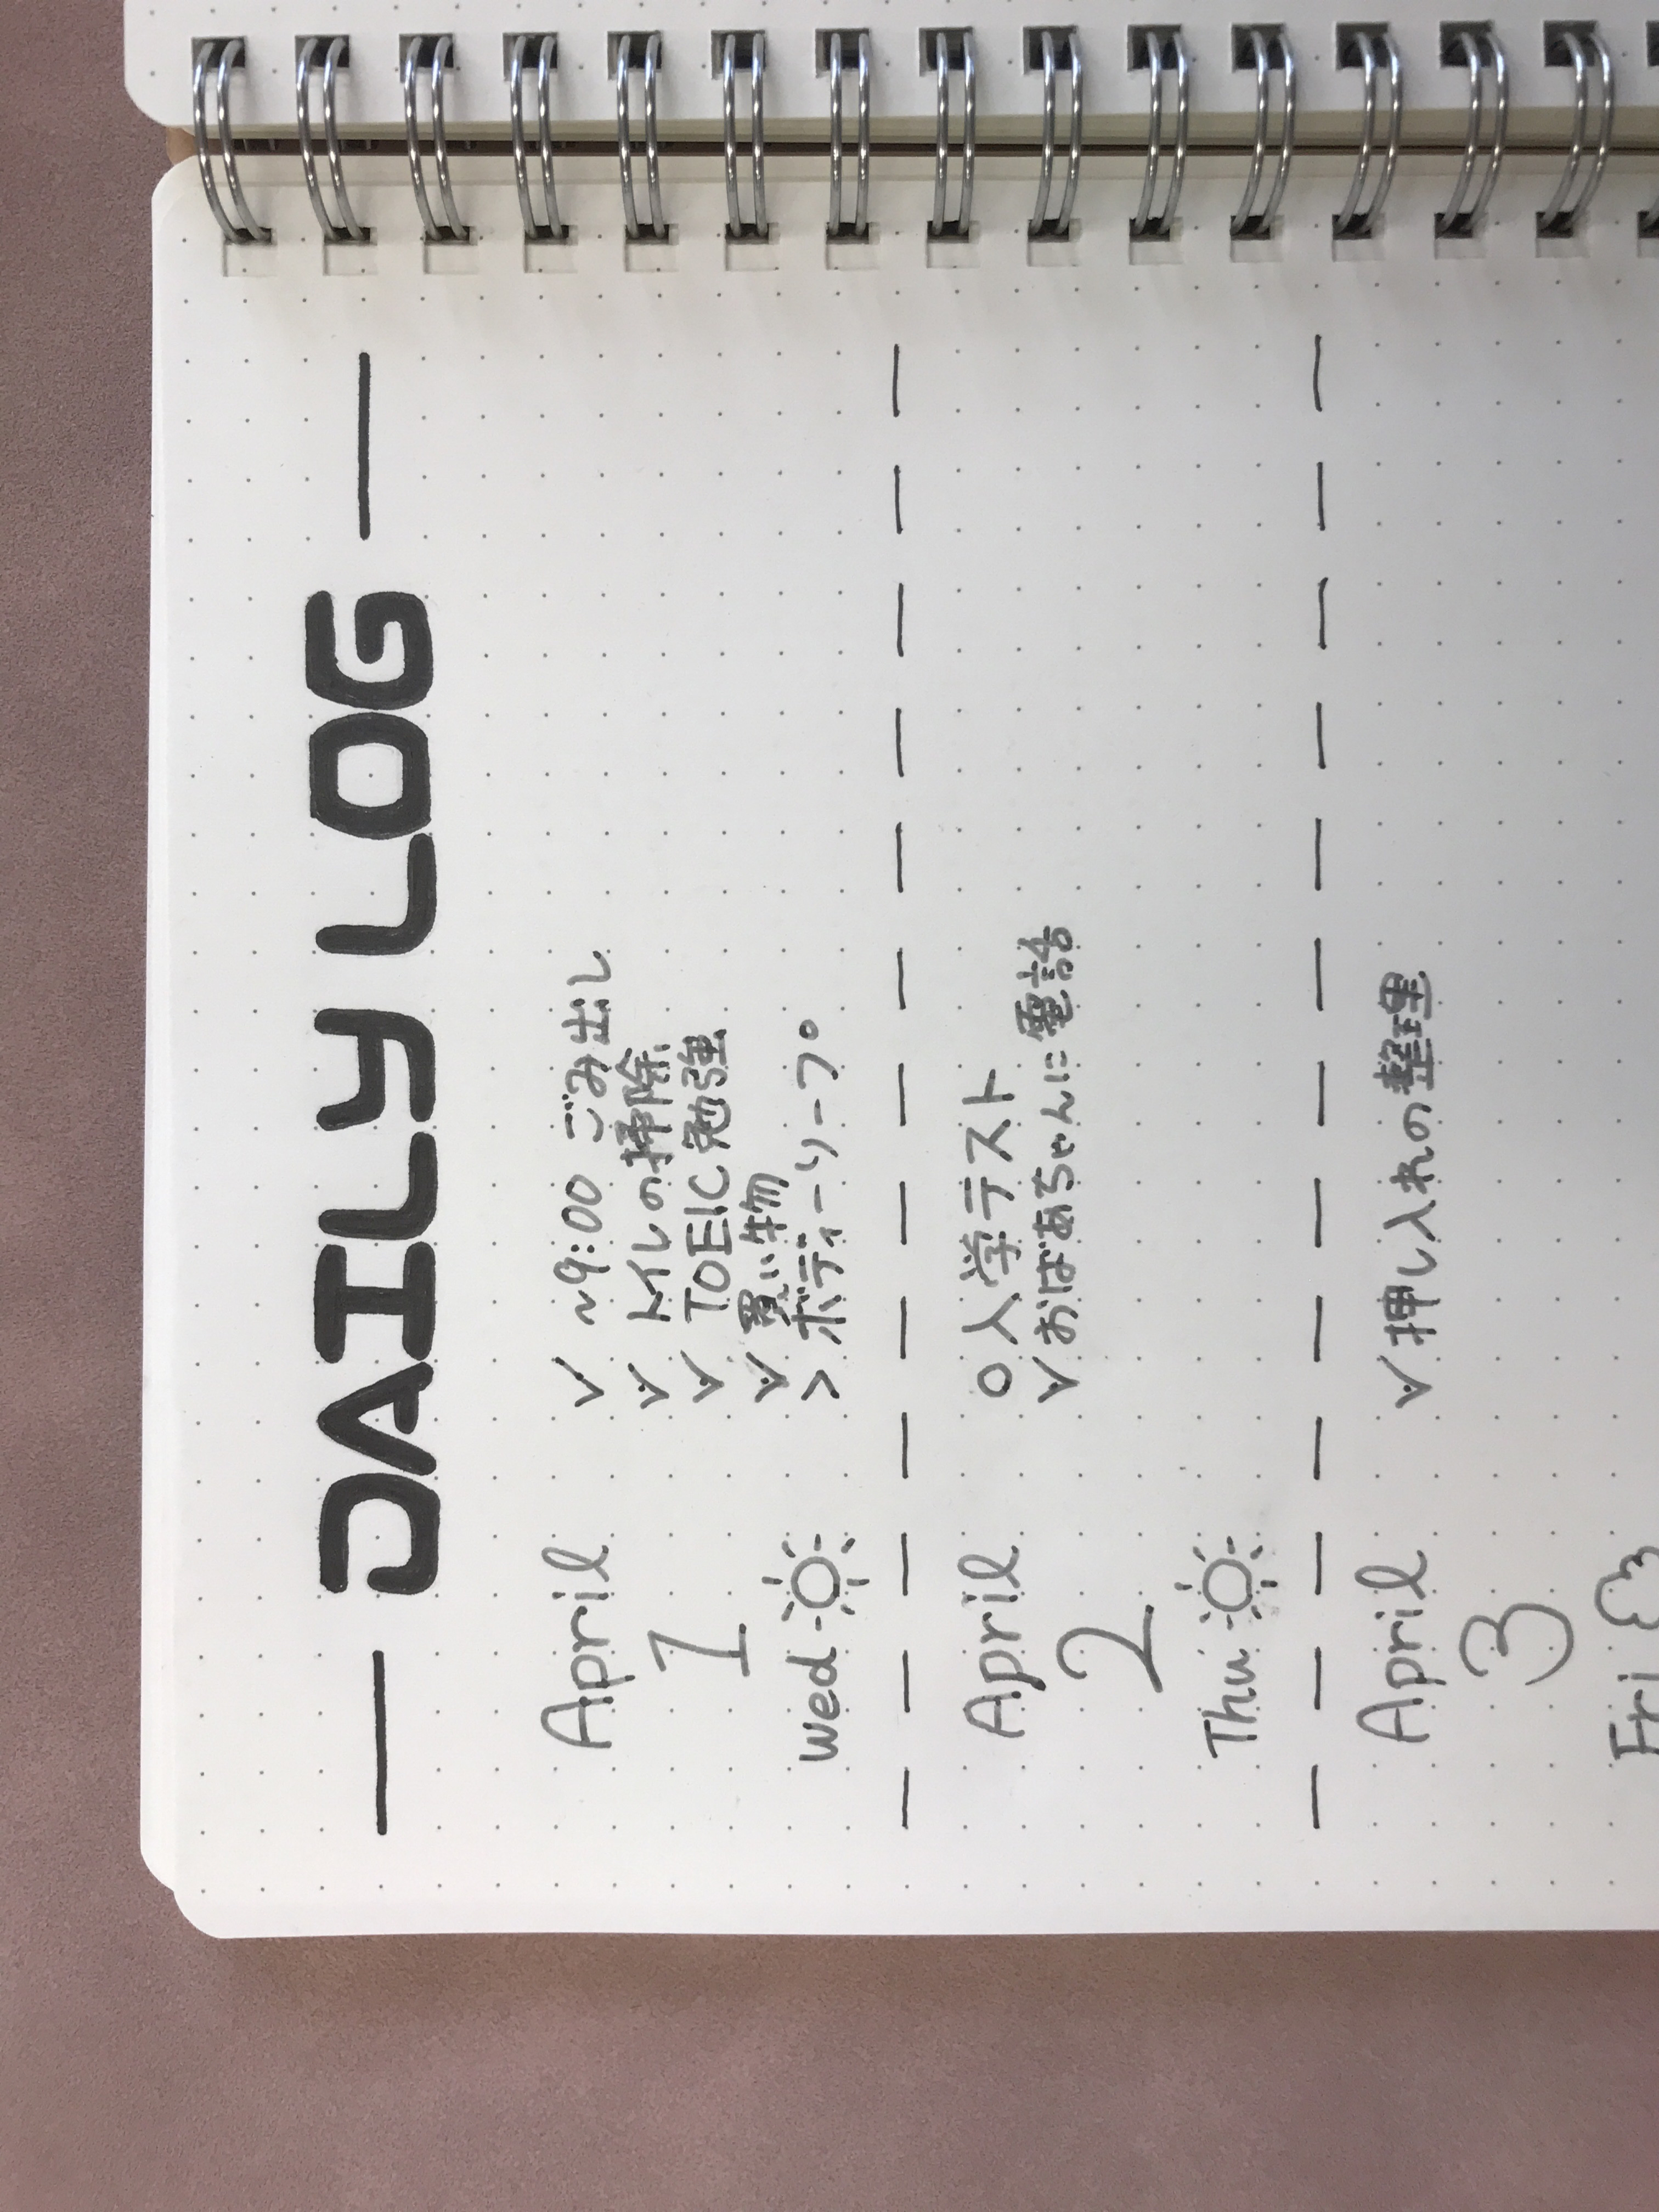 DAILY LOG
April
1
Wed
✓ ~9:00 ごみ出し
✓ トイレの掃除
✓ TOEIC 勉強
✓ 買い物
> ボディーソープ
April
2
Thu
○ 入学テスト
✓ おばあちゃんに電話
April
3
Fri
✓ 押し入れの整理